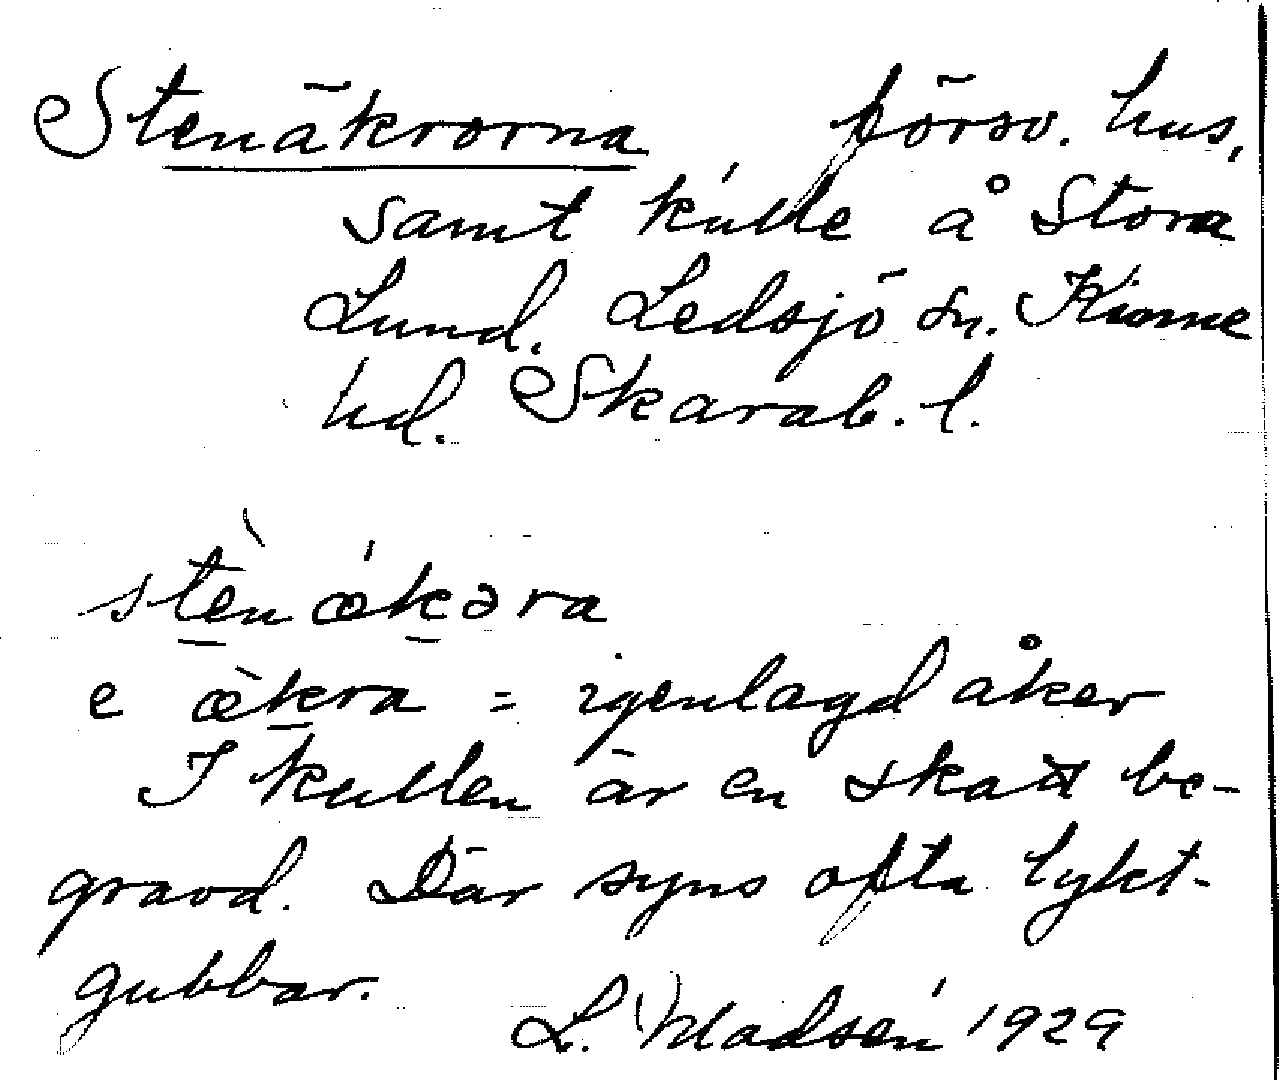 Stenäkrorna försv. hus,
samt kulle å Stora
Lund. Ledsjö sn. Kinne
hd. Skarab. l.
stènǽkəra
e æ̀kra = igenlagd åker
I kullen är en skatt be-
gravd. Där syns ofta lykt-
gubbar.
L. Madsén 1929